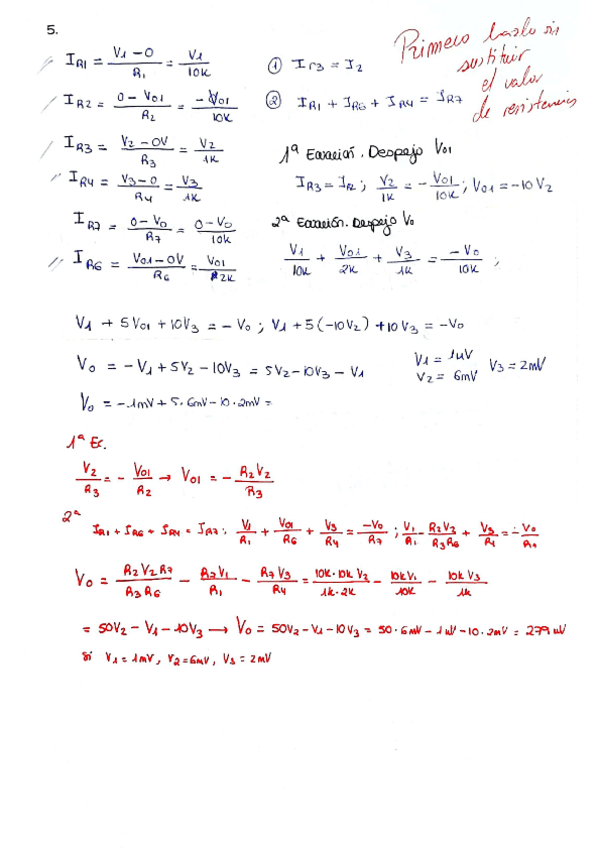 5.
I_R1 = (V1 - 0)/R1 = V1/10k
① I r3 = I2
Primero hazlo sin
sustituir
el valor
de resistencias
I_R2 = (0 - V01)/R2 = -V01/10k
② I_R1 + I_R6 + I_R4 = I_R7
I_R3 = (V2 - 0V)/R3 = V2/1k
1ª Ecuación. Despejo V01
I_R4 = (V3 - 0)/R4 = V3/1k
I_R3 = I_R2 ; V2/1k = - V01/10k ; V01 = -10 V2
I_R7 = (0 - V0)/R7 = (0 - V0)/10k
2ª Ecuación. Despejo V0
I_R6 = (V01 - 0V)/R6 = V01/2k
V1/10k + V01/2k + V3/1k = -V0/10k ;
V1 + 5V01 + 10V3 = -V0 ; V1 + 5(-10V2) + 10V3 = -V0
V0 = -V1 + 5V2 - 10V3 = 5V2 - 10V3 - V1
V1 = 1mV
V2 = 6mV
V3 = 2mV
V0 = -1mV + 5·6mV - 10·2mV =
1ª Ec.
V2/R3 = - V01/R2 → V01 = - R2V2/R3
2ª
I_R1 + I_R6 + I_R4 = I_R7 ; V1/R1 + V01/R6 + V3/R4 = -V0/R7 ; V1/R1 - R2V2/R3R6 + V3/R4 = - V0/
V0 = R2V2R7/R3R6 - R7V1/R1 - R7V3/R4 = 10k·10k V2/1k·2k - 10kV1/10k - 10kV3/1k
= 50V2 - V1 - 10V3 → V0 = 50V2 - V1 - 10V3 = 50·6mV - 1mV - 10·2mV = 279mV
si V1 = 1mV, V2 = 6mV, V3 = 2mV